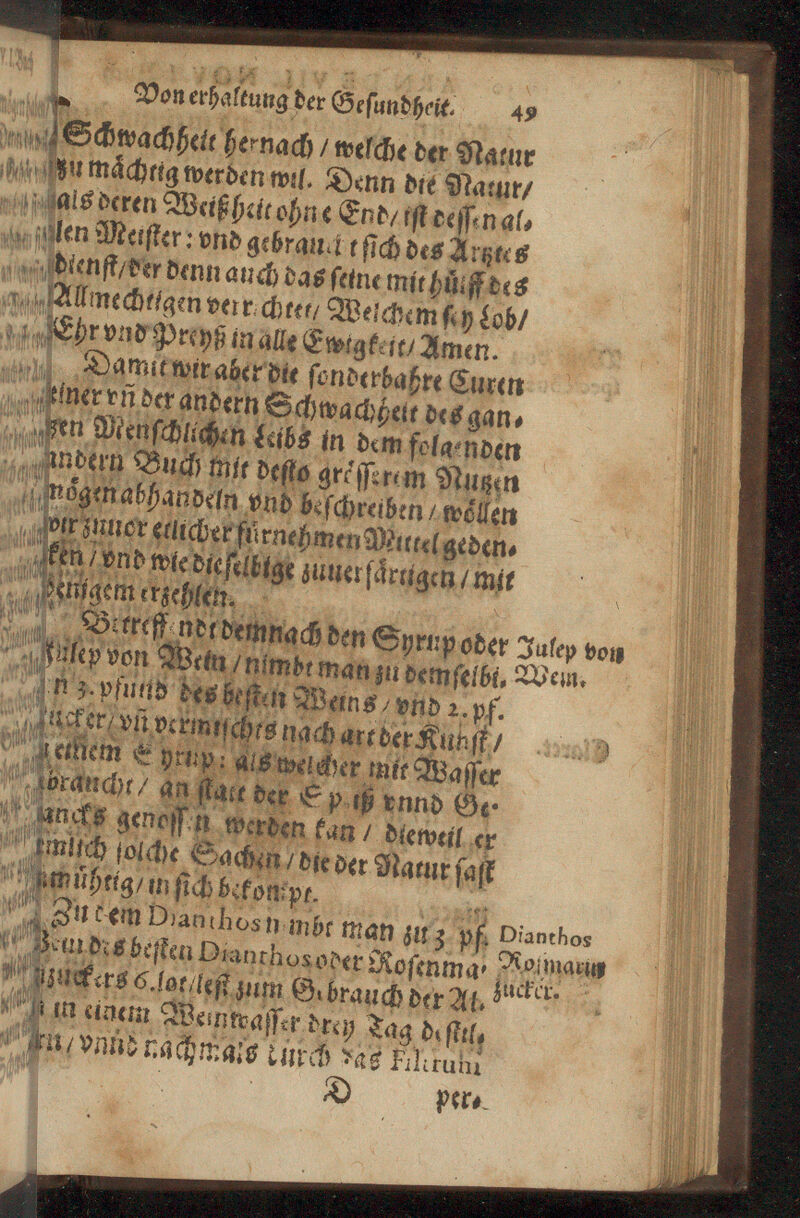 Von erhaltung der Geſundheit. 49
Schwachheit hernach / welche der Natur
zu maͤchtig werden wil. Denn die Natur/
als deren Weißheit ohne End/ iſt deſſen al⸗
len Meiſter: vnd gebraucht ſich des Artztes
dienſt/der denn auch das ſeine mit huͤlff des
Allmechtigen verrichtet/ Welchem ſey Lob/
Ehr vnd Preyß in alle Ewigkeit/ Amen.
Damit wir aber die ſonderbahre Curen
einer vñ der andern Schwachheit des gan⸗
tzen Menſchlichen Leibs in dem folgenden
andern Buch mit deſto groͤſſerem Nutzen
moͤgen abhandeln vnd beſchreiben / woͤllen
wir zuuor etlicher fuͤrnehmen Mittel geden⸗
ken / vnd wie dieſelbige zuuerfaͤrtigen / mit
wenigem erzehlen.
Betreffendt demnach den Syrup oder
Julep von Wein.
Julep von Wein / nimbt man zu demſelbi⸗
n 3. pfund des beſten Weins / vnd 2. pf.
Zucker/ vñ vermiſchts nach art der Kunſt /
einem Syrup: als welcher mit Waſſer
braucht / an ſtatt der Speiß vnnd Ge⸗
trancks genoſſen werden kan / dieweil er
nemlich ſolche Sachen / die der Natur faſt
anmuͤhtig/ in ſich bekompt.
Zu dem Dianthos nimbt man zu 3. pf.
Dianthos
Roſmarin
zucker.
Wein des beſten Dianthos oder Roſenma⸗
rinzuckers 6. lot/leſt zum Gebrauch der Ar⸗
in einem Weinwaſſer drey Tag deſtil⸗
ren / vnnd nachmals durch das Filtrum
D
per⸗